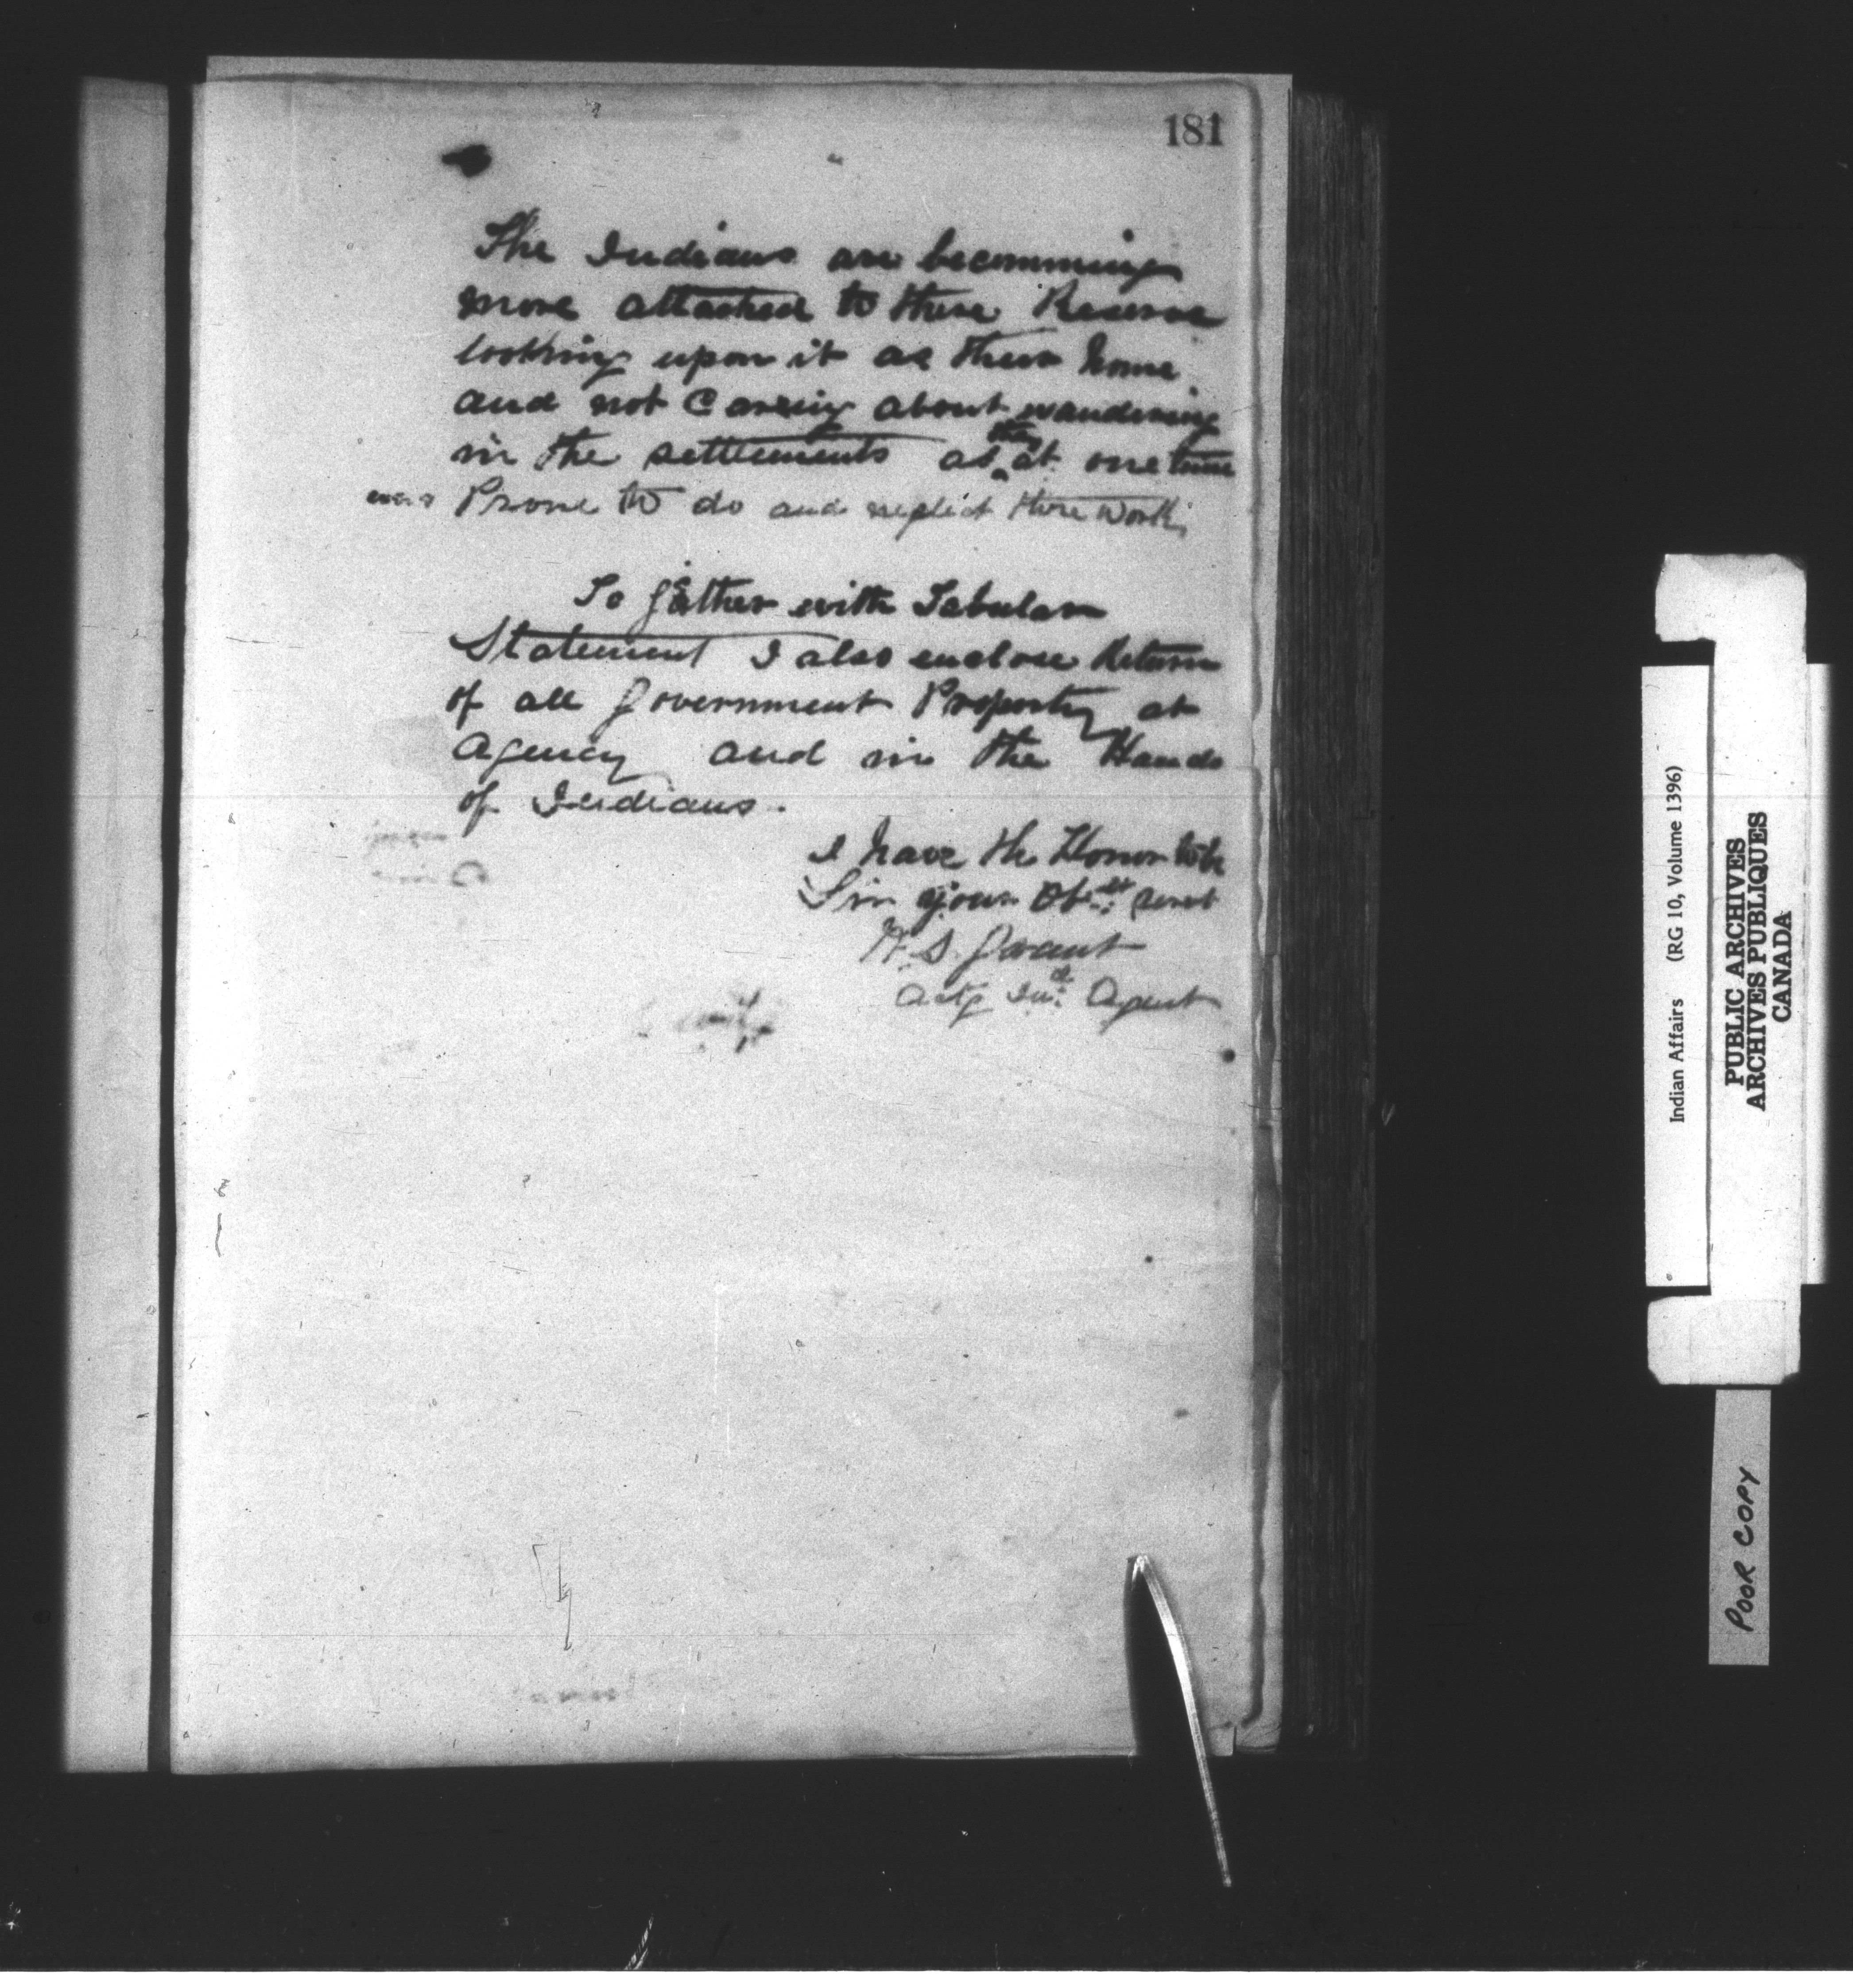 181
The Indians are becomming
more attached to there Reserve
looking upon it as there home
and not Carring about wandering
in the settlements as they at one time
was Prone to do and neglect there work
To gether with Tabular
Statement I also enclose Return
of all Government Property at
Agency and in the Hands
of Indians.
I have the Honor to be
Sir your Obt servt
W. S. Grant
Actg Ind Agent
Indian Affairs (RG 10, Volume 1396)
PUBLIC ARCHIVES
ARCHIVES PUBLIQUES
CANADA
POOR COPY